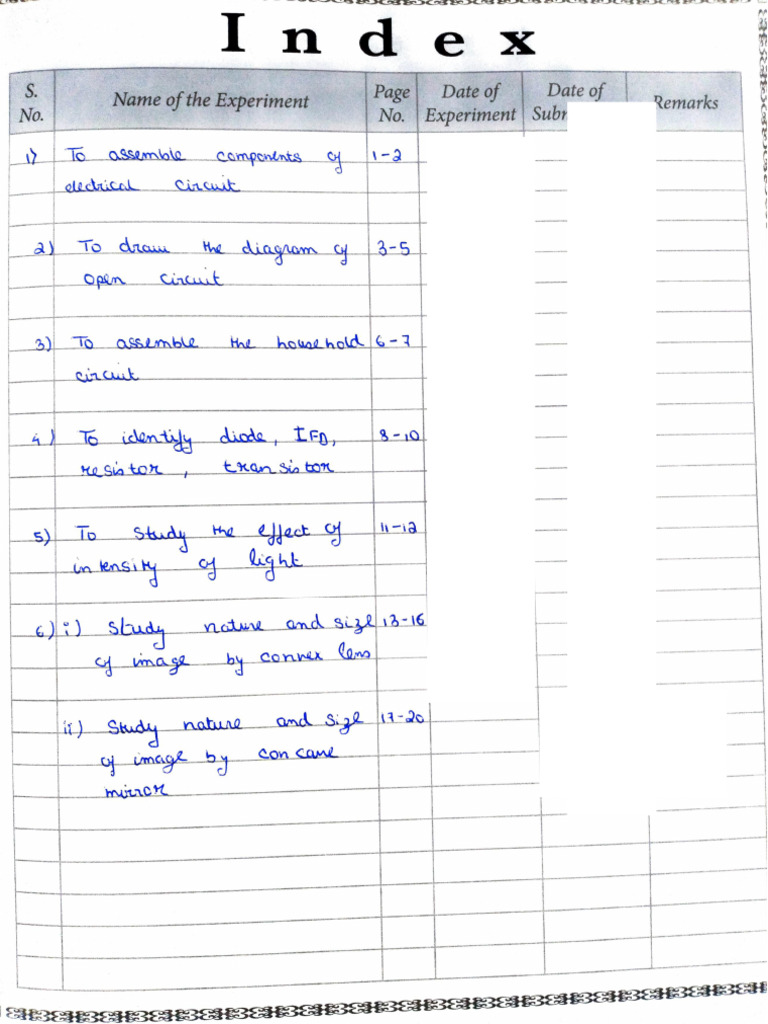 Index
S. No. Name of the Experiment Page No. Date of Experiment Date of Remarks
1) To assemble components of 1-2
electrical circuit
2) To draw the diagram of 3-5
open circuit
3) To assemble the household 6-7
circuit
4) To identify diode, IFD, 8-10
resistor, transistor
5) To study the effect of 11-12
intensity of light
6) i) Study nature and size 13-16
of image by convex lens
ii) Study nature and size 17-20
of image by concave
mirror